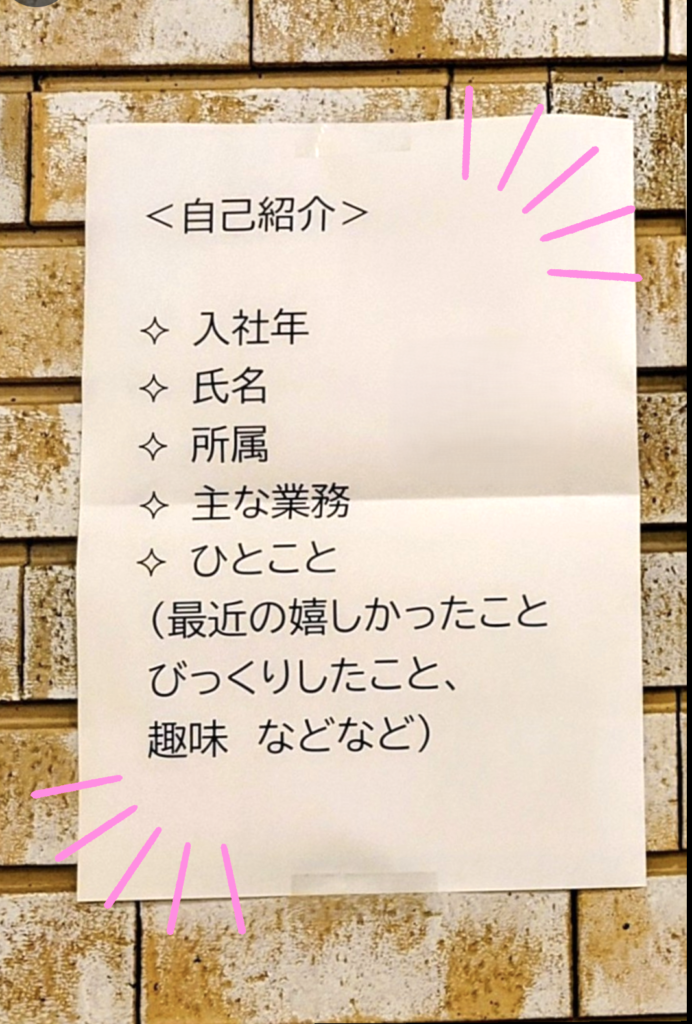 ＜自己紹介＞
✧ 入社年
✧ 氏名
✧ 所属
✧ 主な業務
✧ ひとこと
（最近の嬉しかったこと
びっくりしたこと、
趣味　などなど）